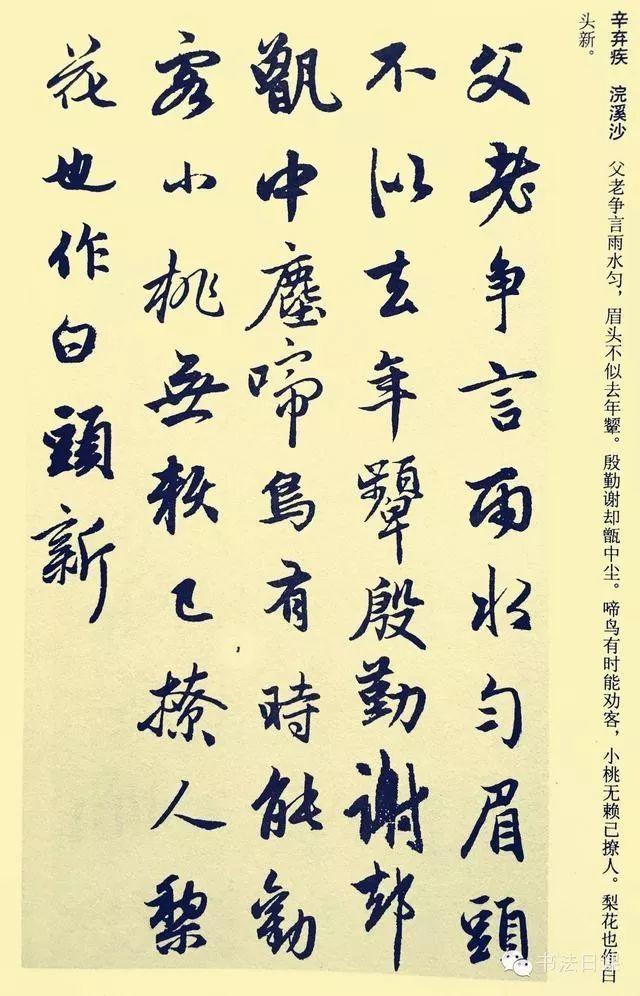 辛弃疾 浣溪沙 父老争言雨水匀，眉头不似去年颦。殷勤谢却甑中尘。啼鸟有时能劝客，小桃无赖已撩人。梨花也作白
头新。
父老争言雨水匀眉頭
不似去年顰殷勤謝却
甑中塵啼鳥有時能勸
客小桃無賴已撩人梨
花也作白頭新
书法日课